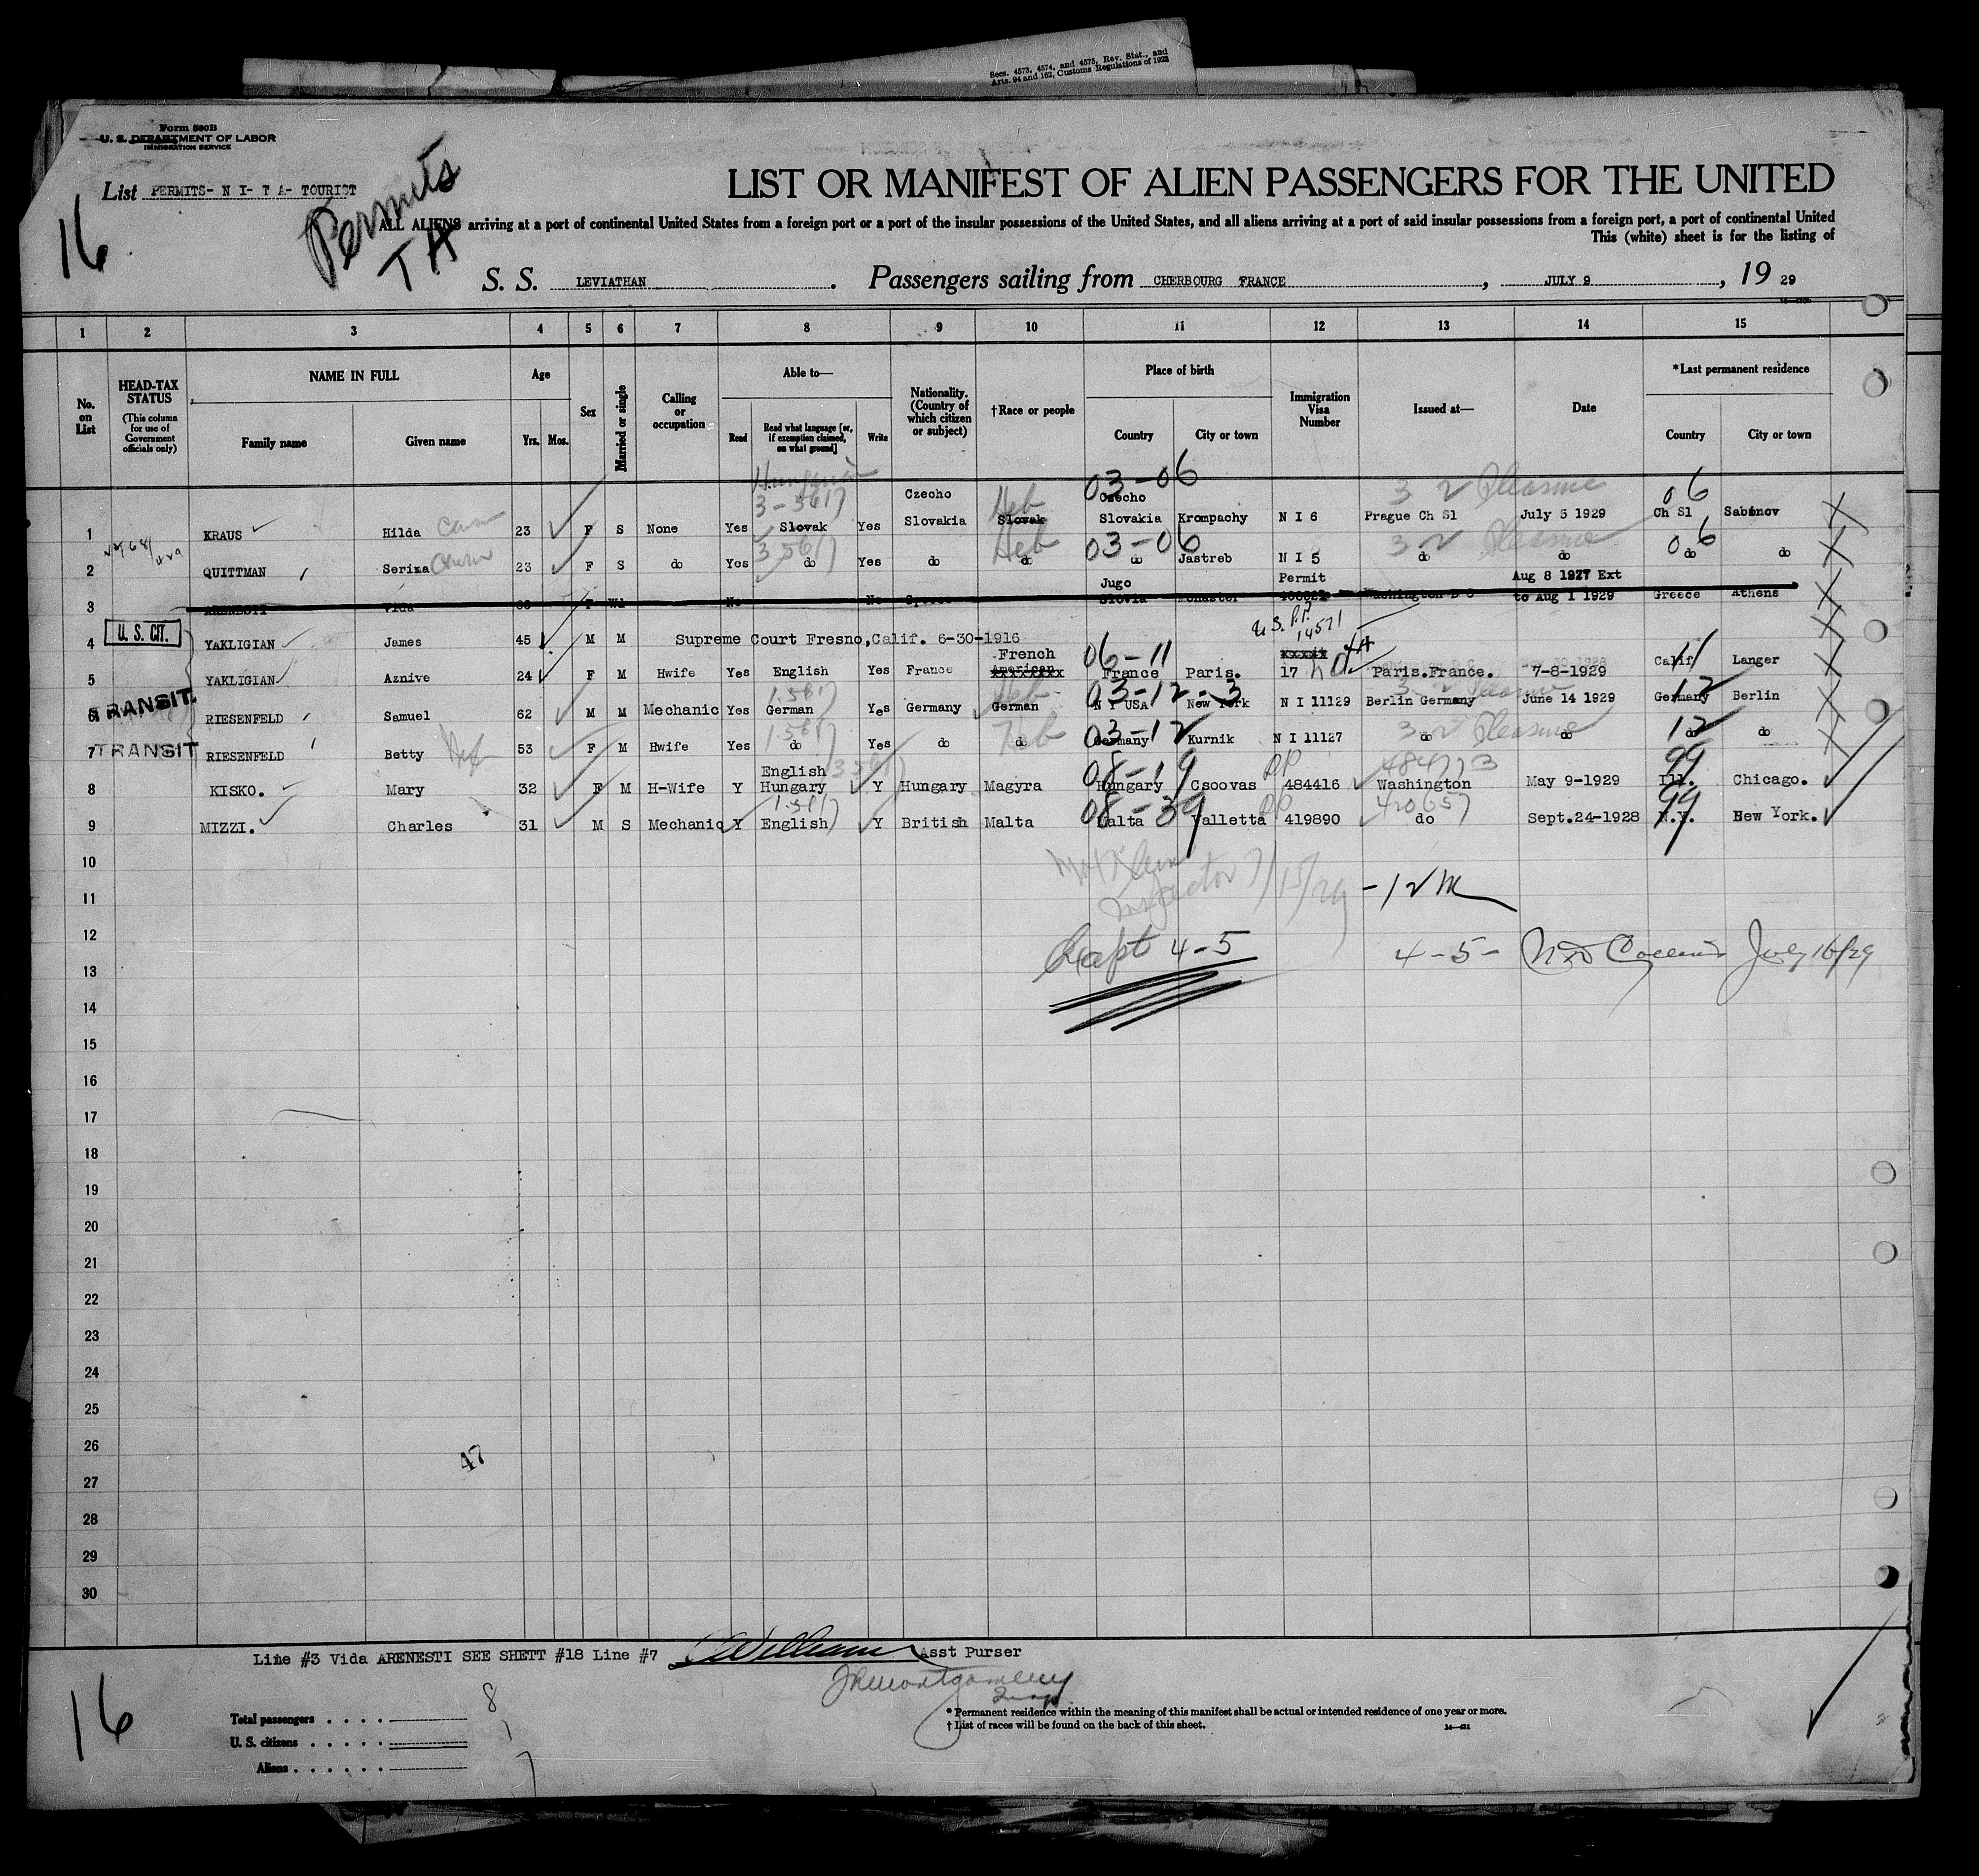 Secs. 4573, 4574, and 4575, Rev. Stat., and
Arts. 94 and 162, Customs Regulations of 1923
Form 500B
U. S. DEPARTMENT OF LABOR
IMMIGRATION SERVICE
List PERMITS- N I- T A- TOURIST
Permits
T A
16
LIST OR MANIFEST OF ALIEN PASSENGERS FOR THE UNITED
ALL ALIENS arriving at a port of continental United States from a foreign port or a port of the insular possessions of the United States, and all aliens arriving at a port of said insular possessions from a foreign port, a port of continental United
This (white) sheet is for the listing of
S. S. LEVIATHAN . Passengers sailing from CHERBOURG FRANCE , JULY 9 , 19 29
1 2 3 4 5 6 7 8 9 10 11 12 13 14 15
No. on List
HEAD-TAX STATUS (This column for use of Government officials only)
NAME IN FULL Family name Given name
Age Yrs. Mos.
Sex
Married or single
Calling or occupation
Able to— Read Read what language [or, if exemption claimed, on what ground] Write
Nationality. (Country of which citizen or subject)
†Race or people
Place of birth Country City or town
Immigration Visa Number
Issued at—
Date
*Last permanent residence Country City or town
Czecho Heb 03-06 Czecho 3 Pleasure 06
1 KRAUS Hilda 23 F S None Yes Slovak Yes Slovakia Slovak Slovakia Krompachy N I 6 Prague Ch Sl July 5 1929 Ch Sl Sabinov
Heb 03-06 3 Pleasure 06
2 QUITTMAN Serina 23 F S do Yes do Yes do do do Jastreb N I 5 do do do do
Jugo Permit Aug 8 1927 Ext
3 ARENESTI Vida F Wd No No Greece Slovia Monaster Washington D C to Aug 1 1929 Greece Athens
U. S. CIT.
4 YAKLIGIAN James 45 M M Supreme Court Fresno,Calif. 6-30-1916 U.S. P.P. 14571
French 06-11 xxxxx 11
5 YAKLIGIAN Aznive 24 F M Hwife Yes English Yes France American France Paris. 17 Paris.France. 7-8-1929 Calif Langer
TRANSIT
Heb 03-12-3 12
6 RIESENFELD Samuel 62 M M Mechanic Yes German Yes Germany German N Y USA New York N I 11129 Berlin Germany June 14 1929 Germany Berlin
TRANSIT
03-12 3 Pleasure 12
7 RIESENFELD Betty 53 F M Hwife Yes do Yes do do Germany Kurnik N I 11127 do do do do
English 08-19 RP 99
8 KISKO. Mary 32 F M H-Wife Y Hungary Y Hungary Magyra Hungary Csoovas 484416 Washington May 9-1929 Ill. Chicago.
08-39 RP 420657 99
9 MIZZI. Charles 31 M S Mechanic Y English Y British Malta Malta Valletta 419890 do Sept.24-1928 N.Y. New York.
10
Inspector 7/15/29
11
12
Capt 4-5
4-5- July 16/29
13
14
15
16
17
18
19
20
21
22
23
24
25
26
47
27
28
29
30
Line #3 Vida ARENESTI SEE SHETT #18 Line #7 Asst Purser
JRMontgomery
16
Total passengers . . . . 8
U. S. citizens . . . . . 1
Aliens . . . . . . 7
* Permanent residence within the meaning of this manifest shall be actual or intended residence of one year or more.
† List of races will be found on the back of this sheet.
14—421